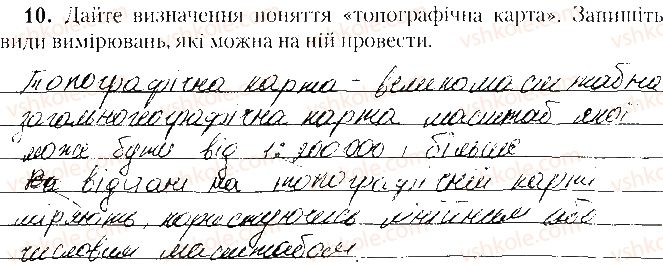 10. Дайте визначення поняття «топографічна карта». Запишіть
види вимірювань, які можна на ній провести.
Топографічна карта - великомасштабна
загальногеографічна карта масштаб якої
може бути від 1:200000 і більше
на відстані на топографічній карті
міряють, користуючись лінійним або
числовим масштабом.